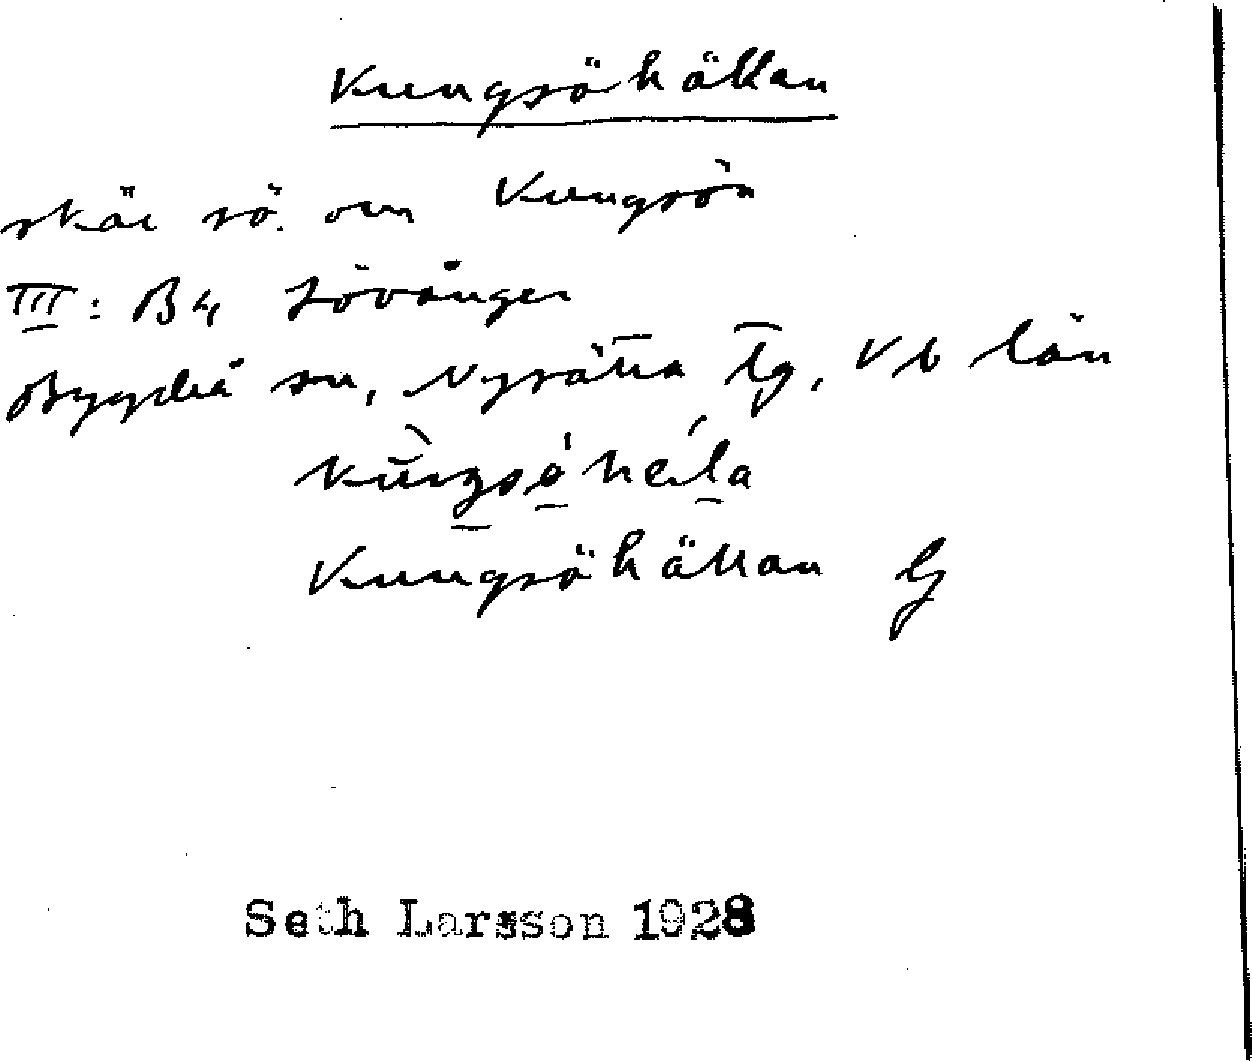 Kungsöhällan
skär sö. om Kungsön
III: B4 Lövånger
Bygdeå sn, Nysätra tg, Vb län
Kungsöhällan G
Seth Larsson 1928